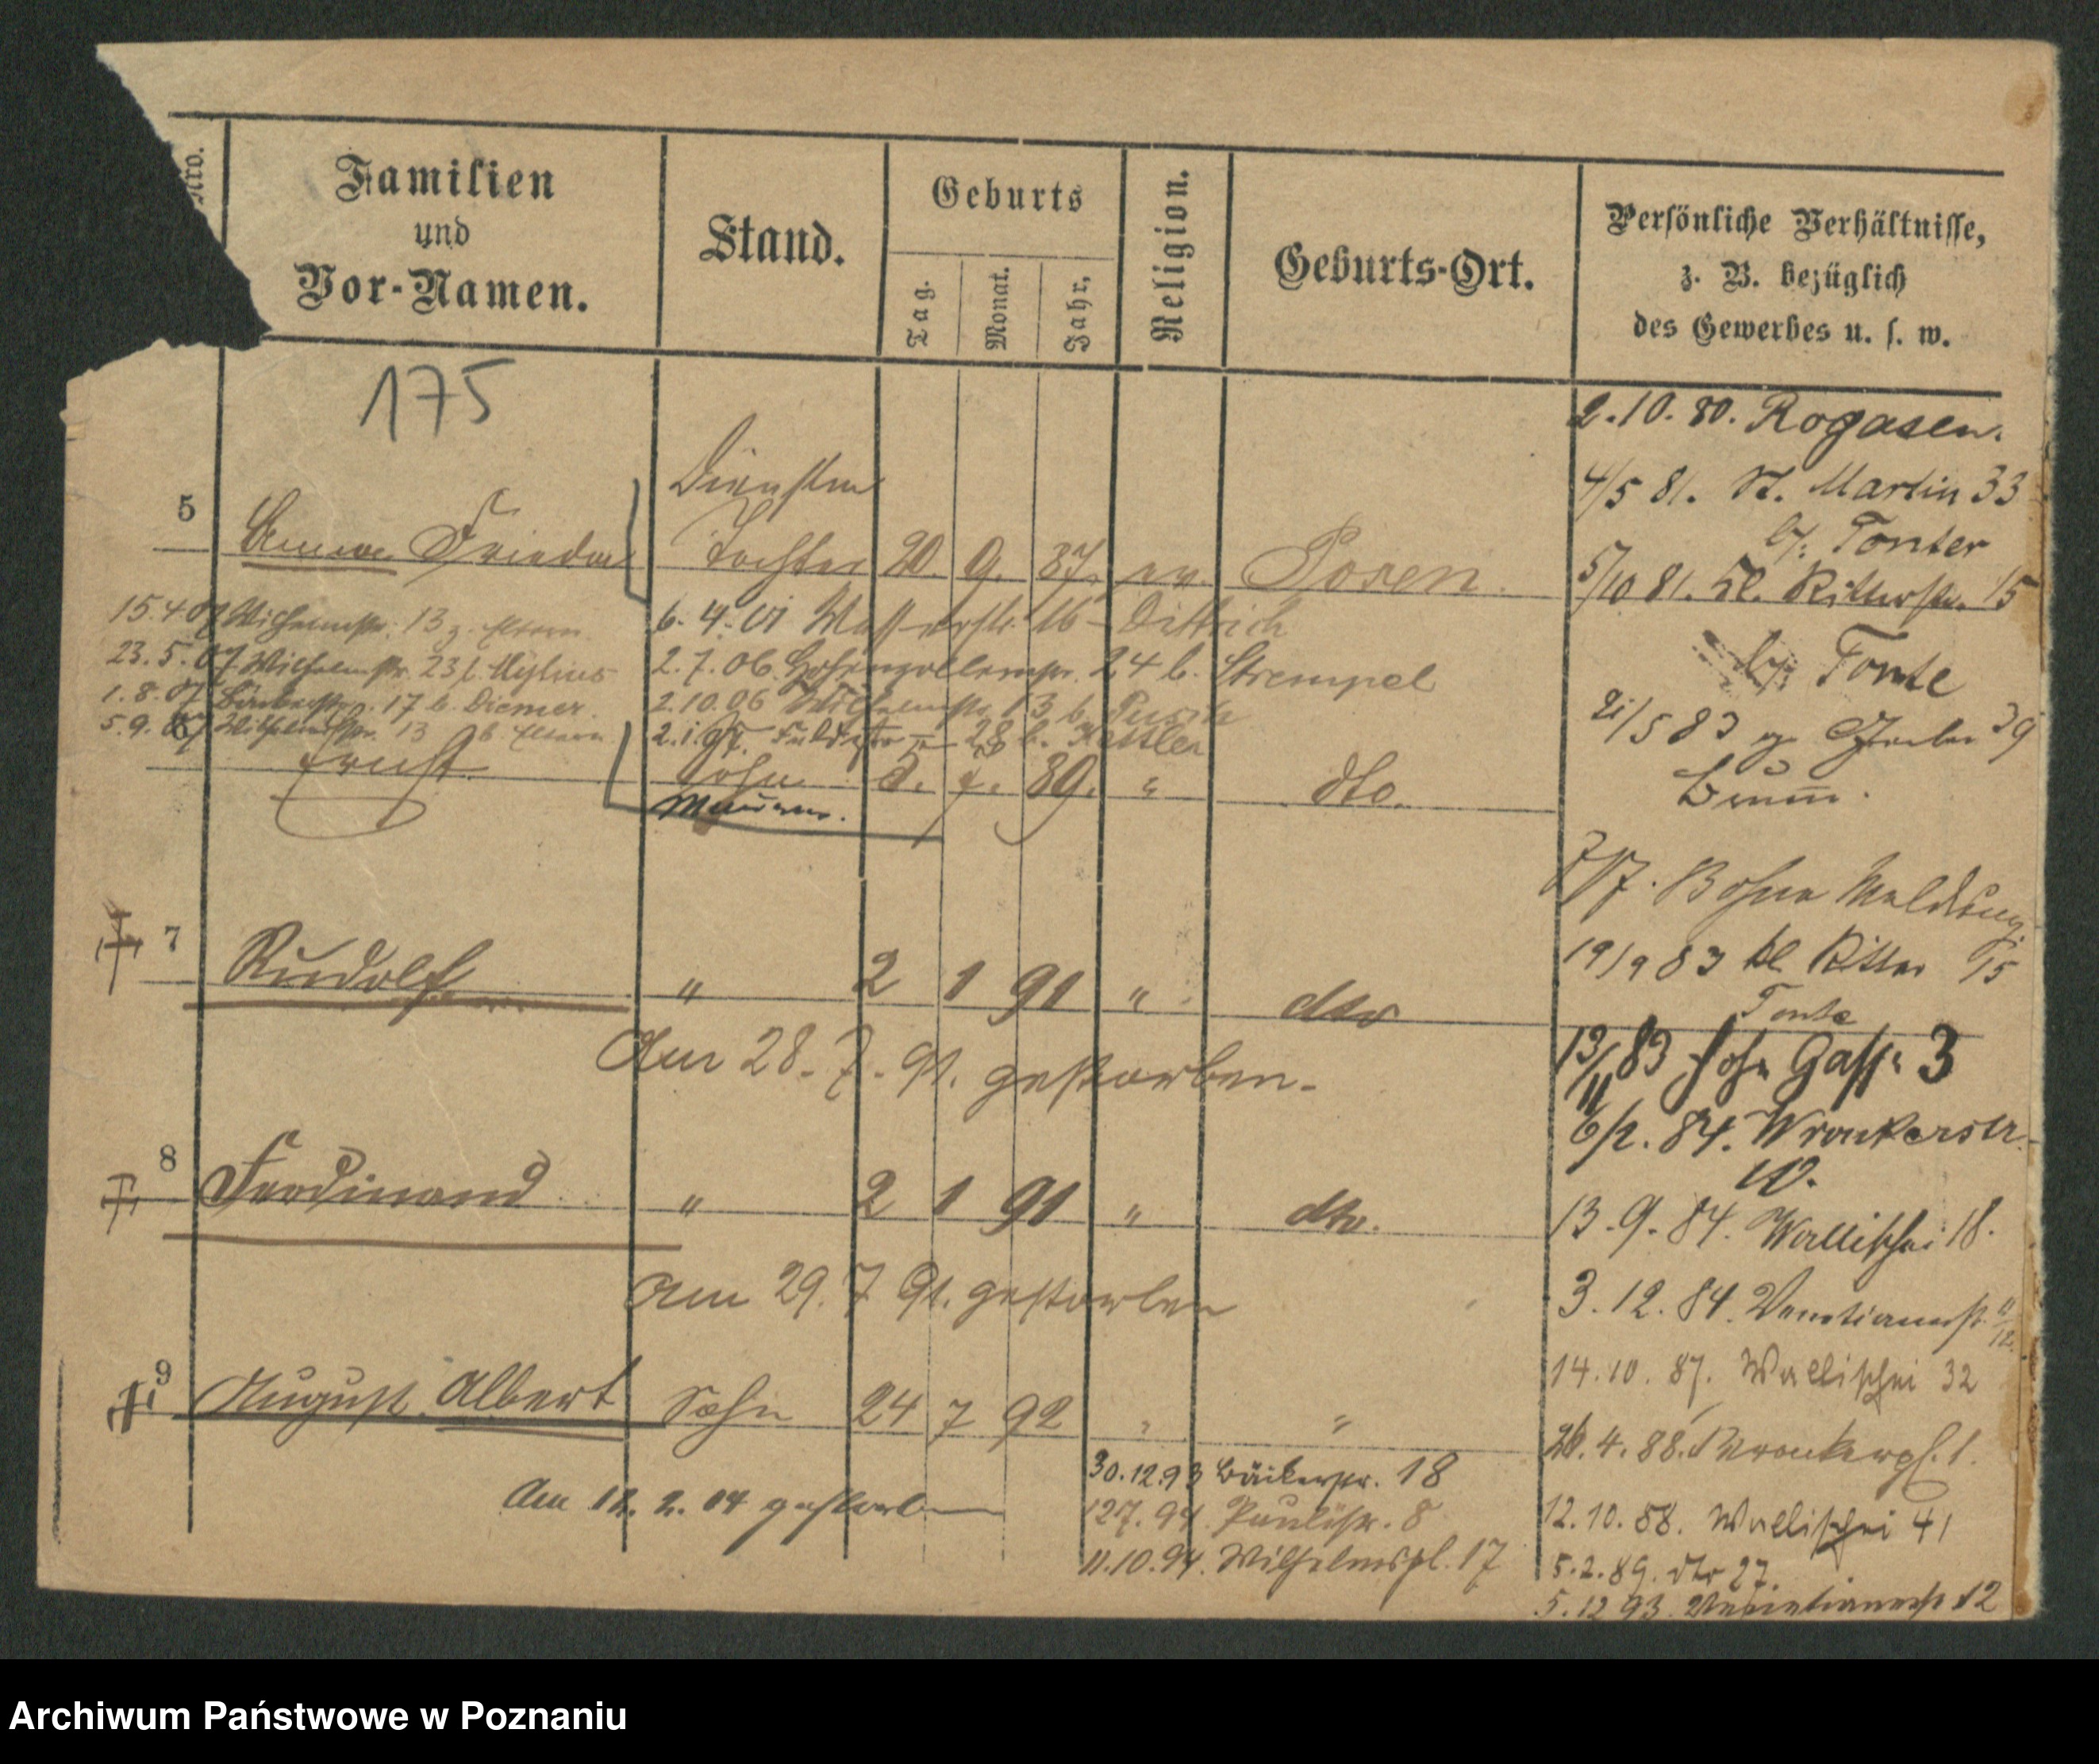 Nro.
Familien
und
Vor-Namen.
Stand.
Geburts
Tag.
Monat.
Jahr.
Religion.
Geburts-Ort.
Persönliche Verhältnisse,
z. B. bezüglich
des Gewerbes u. s. w.
175
2.10.80. Rogasen.
4/5 81. St. Martin 33
b/: Tonter
5/10 81. Kl. Ritterstr. 15
b/: Tonte
21/5 83 39
7/7. Ohne Meldung.
19/9 83 kl Ritter 15
Tonte
13/11 83 hohe Gasse 3
6/2. 84. Wronkerstr.
10.
13.9.84. Wallischei 18.
3.12.84. Venetianerstr. 11/12.
14.10.87. Wallischei 32
26.4.88. Wronkerpl. 1.
12.10.88. Wallischei 41
5.2.89. dto 27.
5.12.93. Venetianerstr 12
5 Frieda Tochter 20. 9. 87. ev. Posen.
15.4.07 Wilhelmstr. 13 z. Eltern
23.5.07. Wilhelmstr. 23 b. Mylius
1.8.07 Bäckerstr. 17 b. Diemer.
5.9.07 Wilhelmstr. 13 b. Eltern
6.4.01 Wasserstr. 16 - Dittrich
2.7.06. Hohenzollernstr. 24 b. Strempel
2.10.06 Wilhelmstr. 13 b.
2.1.07. 28 b. Kessler
6 Ernst Sohn 5. 7. 89. " dto.
Maurer.
7 Rudolf " 2 1 91 " dto
Am 28.7.91. gestorben.
8 Ferdinand " 2 1 91 " dto.
Am 29.7 91. gestorben
9 August Albert Sohn 24 7 92 " "
Am 12.2.04 gestorben
30.12.93 Bäckerstr. 18
12.7.94. Paulistr. 8
11.10.94. Wilhelmspl. 17
Archiwum Państwowe w Poznaniu